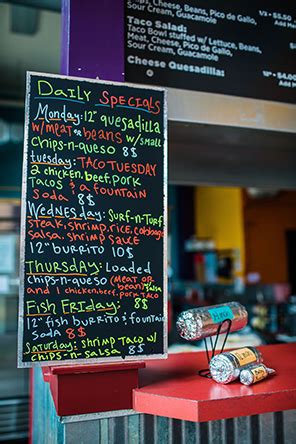 Daily Specials
Monday: 12" quesadilla
w/meat or beans w/small
chips-n-queso 8$
Tuesday: Taco Tuesday
2 chicken, beef, pork
tacos & a fountain
soda 8$
Wednesday: Surf-n-Turf
steak, shrimp, rice, cabbage
salsa, shrimp sauce
12" burrito 10$
Thursday: Loaded
chips-n-queso (meat or beans)
and 1 chicken, beef, pork taco
8$
Fish Friday: 8$
12" fish burrito & fountain
soda 8$
Saturday: shrimp taco w/
chips-n-salsa 8$
Cheese, Beans, Pico de Gallo,
Sour Cream, Guacamole
Taco Salad:
Taco Bowl stuffed w/ Lettuce, Beans,
Meat, Cheese, Pico de Gallo,
Sour Cream, Guacamole
Cheese Quesadilla: